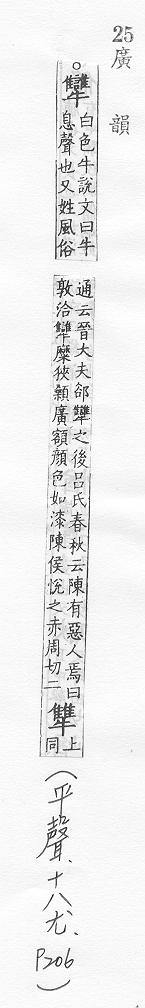 25
廣韻
。犨 白色牛說文曰牛
息聲也又姓風俗
通云晉大夫郤犨之後呂氏春秋云陳有惡人焉曰
敦洽犨糜狹顙廣額顏色如漆陳侯悅之赤周切二
犫 上
同
(平聲、十八尤、P206)